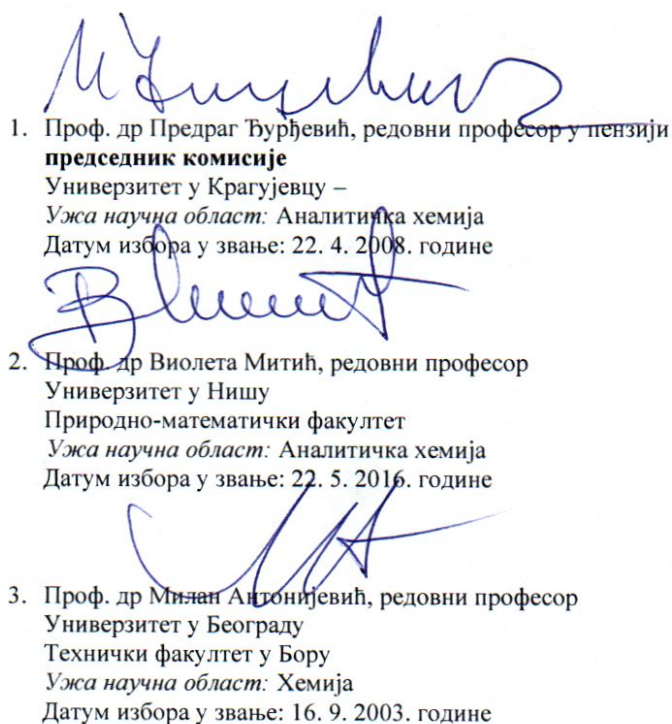 1. Проф. др Предраг Ђурђевић, редовни професор у пензији
председник комисије
Универзитет у Крагујевцу –
Ужа научна област: Аналитичка хемија
Датум избора у звање: 22. 4. 2008. године
2. Проф. др Виолета Митић, редовни професор
Универзитет у Нишу
Природно-математички факултет
Ужа научна област: Аналитичка хемија
Датум избора у звање: 22. 5. 2016. године
3. Проф. др Милан Антонијевић, редовни професор
Универзитет у Београду
Технички факултет у Бору
Ужа научна област: Хемија
Датум избора у звање: 16. 9. 2003. године